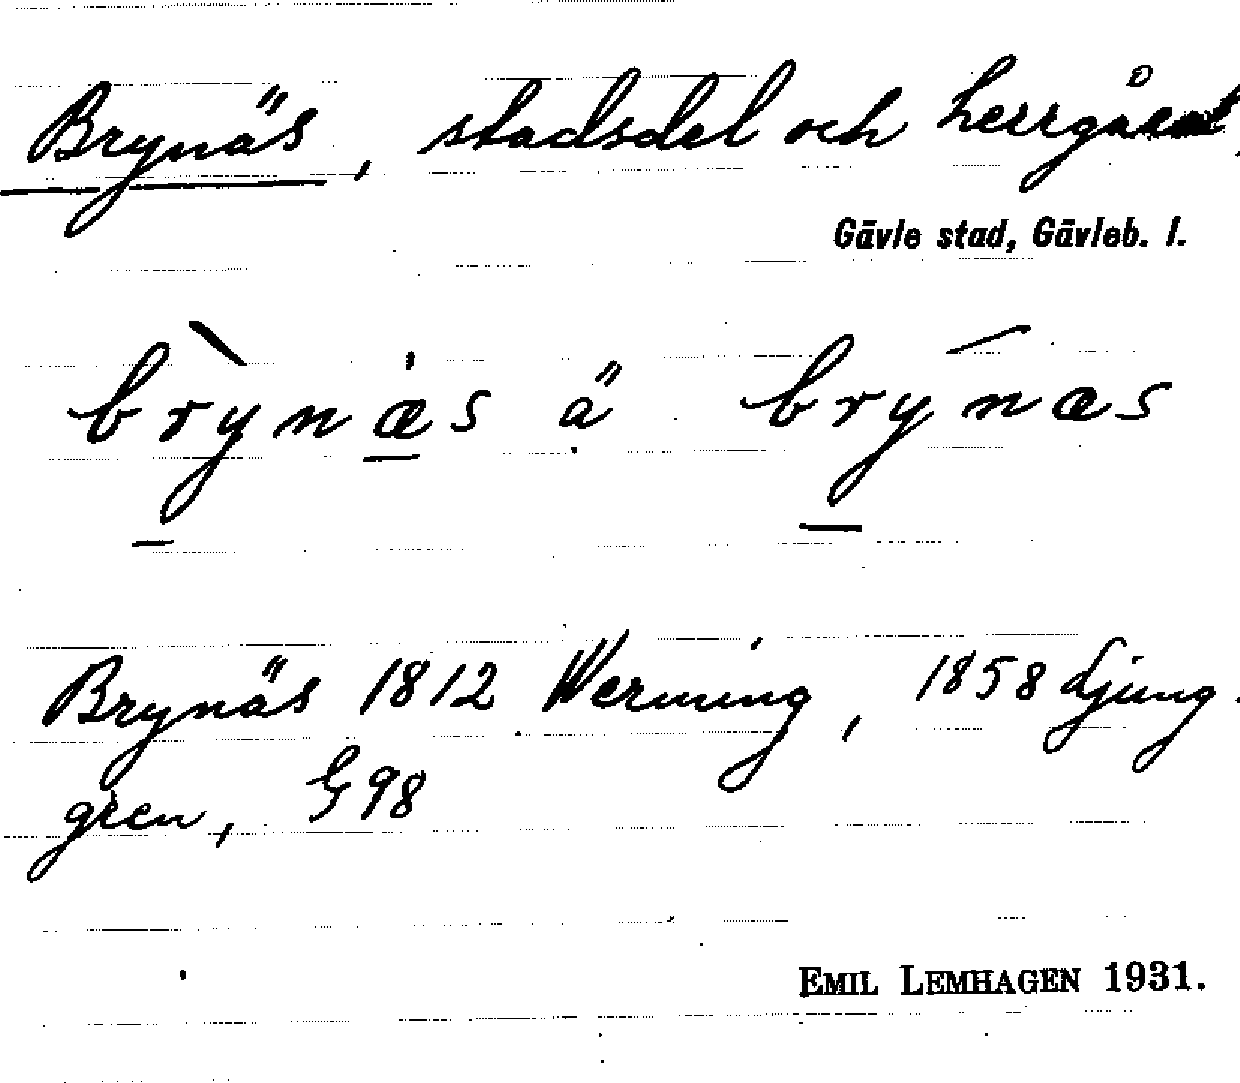 Brynäs, stadsdel och herrgård,
Gävle stad, Gävleb. l.
brỳnæ̀s ä brýnæs
Brynäs 1812 Werming, 1858 Ljung-
gren, G98
EMIL LEMHAGEN 1931.